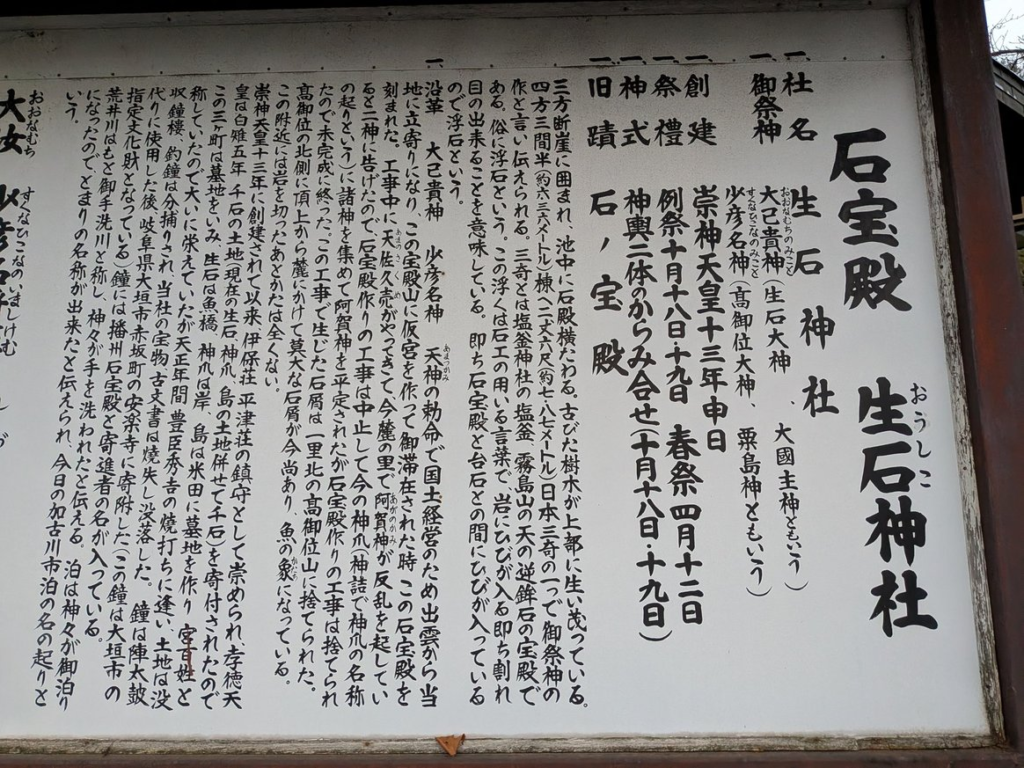 石宝殿 生石神社
おうしこ
一 社名 生石神社
一 御祭神 大己貴神(生石大神、大國主神ともいう)
おおなむちのみこと
少彦名神(髙御位大神、粟島神ともいう)
すくなひこなのみこと
一 創建 崇神天皇十三年申日
一 祭禮 例祭十月十八日十九日 春祭四月十二日
一 神式 神輿二体のからみ合せ(十月十八日、十九日)
一 旧蹟 石ノ宝殿
三方断崖に囲まれ、池中に石殿横たわる。古びた樹木が上部に生い茂っている。
四方三間半(約六・三六メートル)棟へ二丈六尺(約七・八七メートル)日本三奇の一つで御祭神の
作と言い伝えられる。三奇とは塩釜神社の塩釜、霧島山の天の逆鉾石の宝殿で
ある。俗に浮石という。この浮くは石工の用いる言葉で、岩にひびが入る即ち割れ
目の出来ることを意味している。即ち石宝殿と台石との間にひびが入っている
ので浮石という。
一 沿革 大己貴神 少彦名神 天神の勅命で国土経営のため出雲から当
あまつかみ
地に立寄りになり、この宝殿山に仮宮を作って御滞在された時 この石宝殿を
刻まれた。工事中に天佐久売がやってきて今麓の里で阿賀神が反乱を起してい
あまさくめ
あがのかみ
ると二神に告げたので、石宝殿作りの工事は中止して今の神爪(神詰で神爪の名称
の起りという)に諸神を集めて阿賀神を平定されたが石宝殿作りの工事は捨てられ
たので未完成に終った。この工事で生じた石屑は一里北の髙御位山に捨てられた。
髙御位の北側に頂上から麓にかけて莫大な石屑が今尚あり、魚の象になっている。
この附近には岩を切ったあとかたは全くない。
崇神天皇十三年に創建されて以来 伊保荘 平津荘の鎮守として崇められ、孝徳天
皇は白雉五年 千石の土地(現在の生石、神爪、島の土地併せて千石)を寄付されたので
この三ヶ町は墓地をいみ 生石は魚橋、神爪は岸、島は米田に墓地を作り 宮百姓と
称していたので大いに栄えていたが天正年間 豊臣秀吉の焼打ちに逢い、土地は没
収、鐘楼、釣鐘は分捕りされ、当社の宝物、古文書は焼失し没落した。鐘は陣太鼓
代りに使用した後、岐阜県大垣市赤坂町の安楽寺に寄附した(この鐘は大垣市の
指定文化財となっている)鐘には播州石宝殿と寄進者の名が入っている。
荒井川はもと御手洗川と称し、神々が手を洗われたと伝える。泊は神々が御泊り
になったので、とまりの名称が出来たと伝えられ、今日の加古川市泊の名の起りと
いう。
おおなむち
すくなひこなのいましけむ